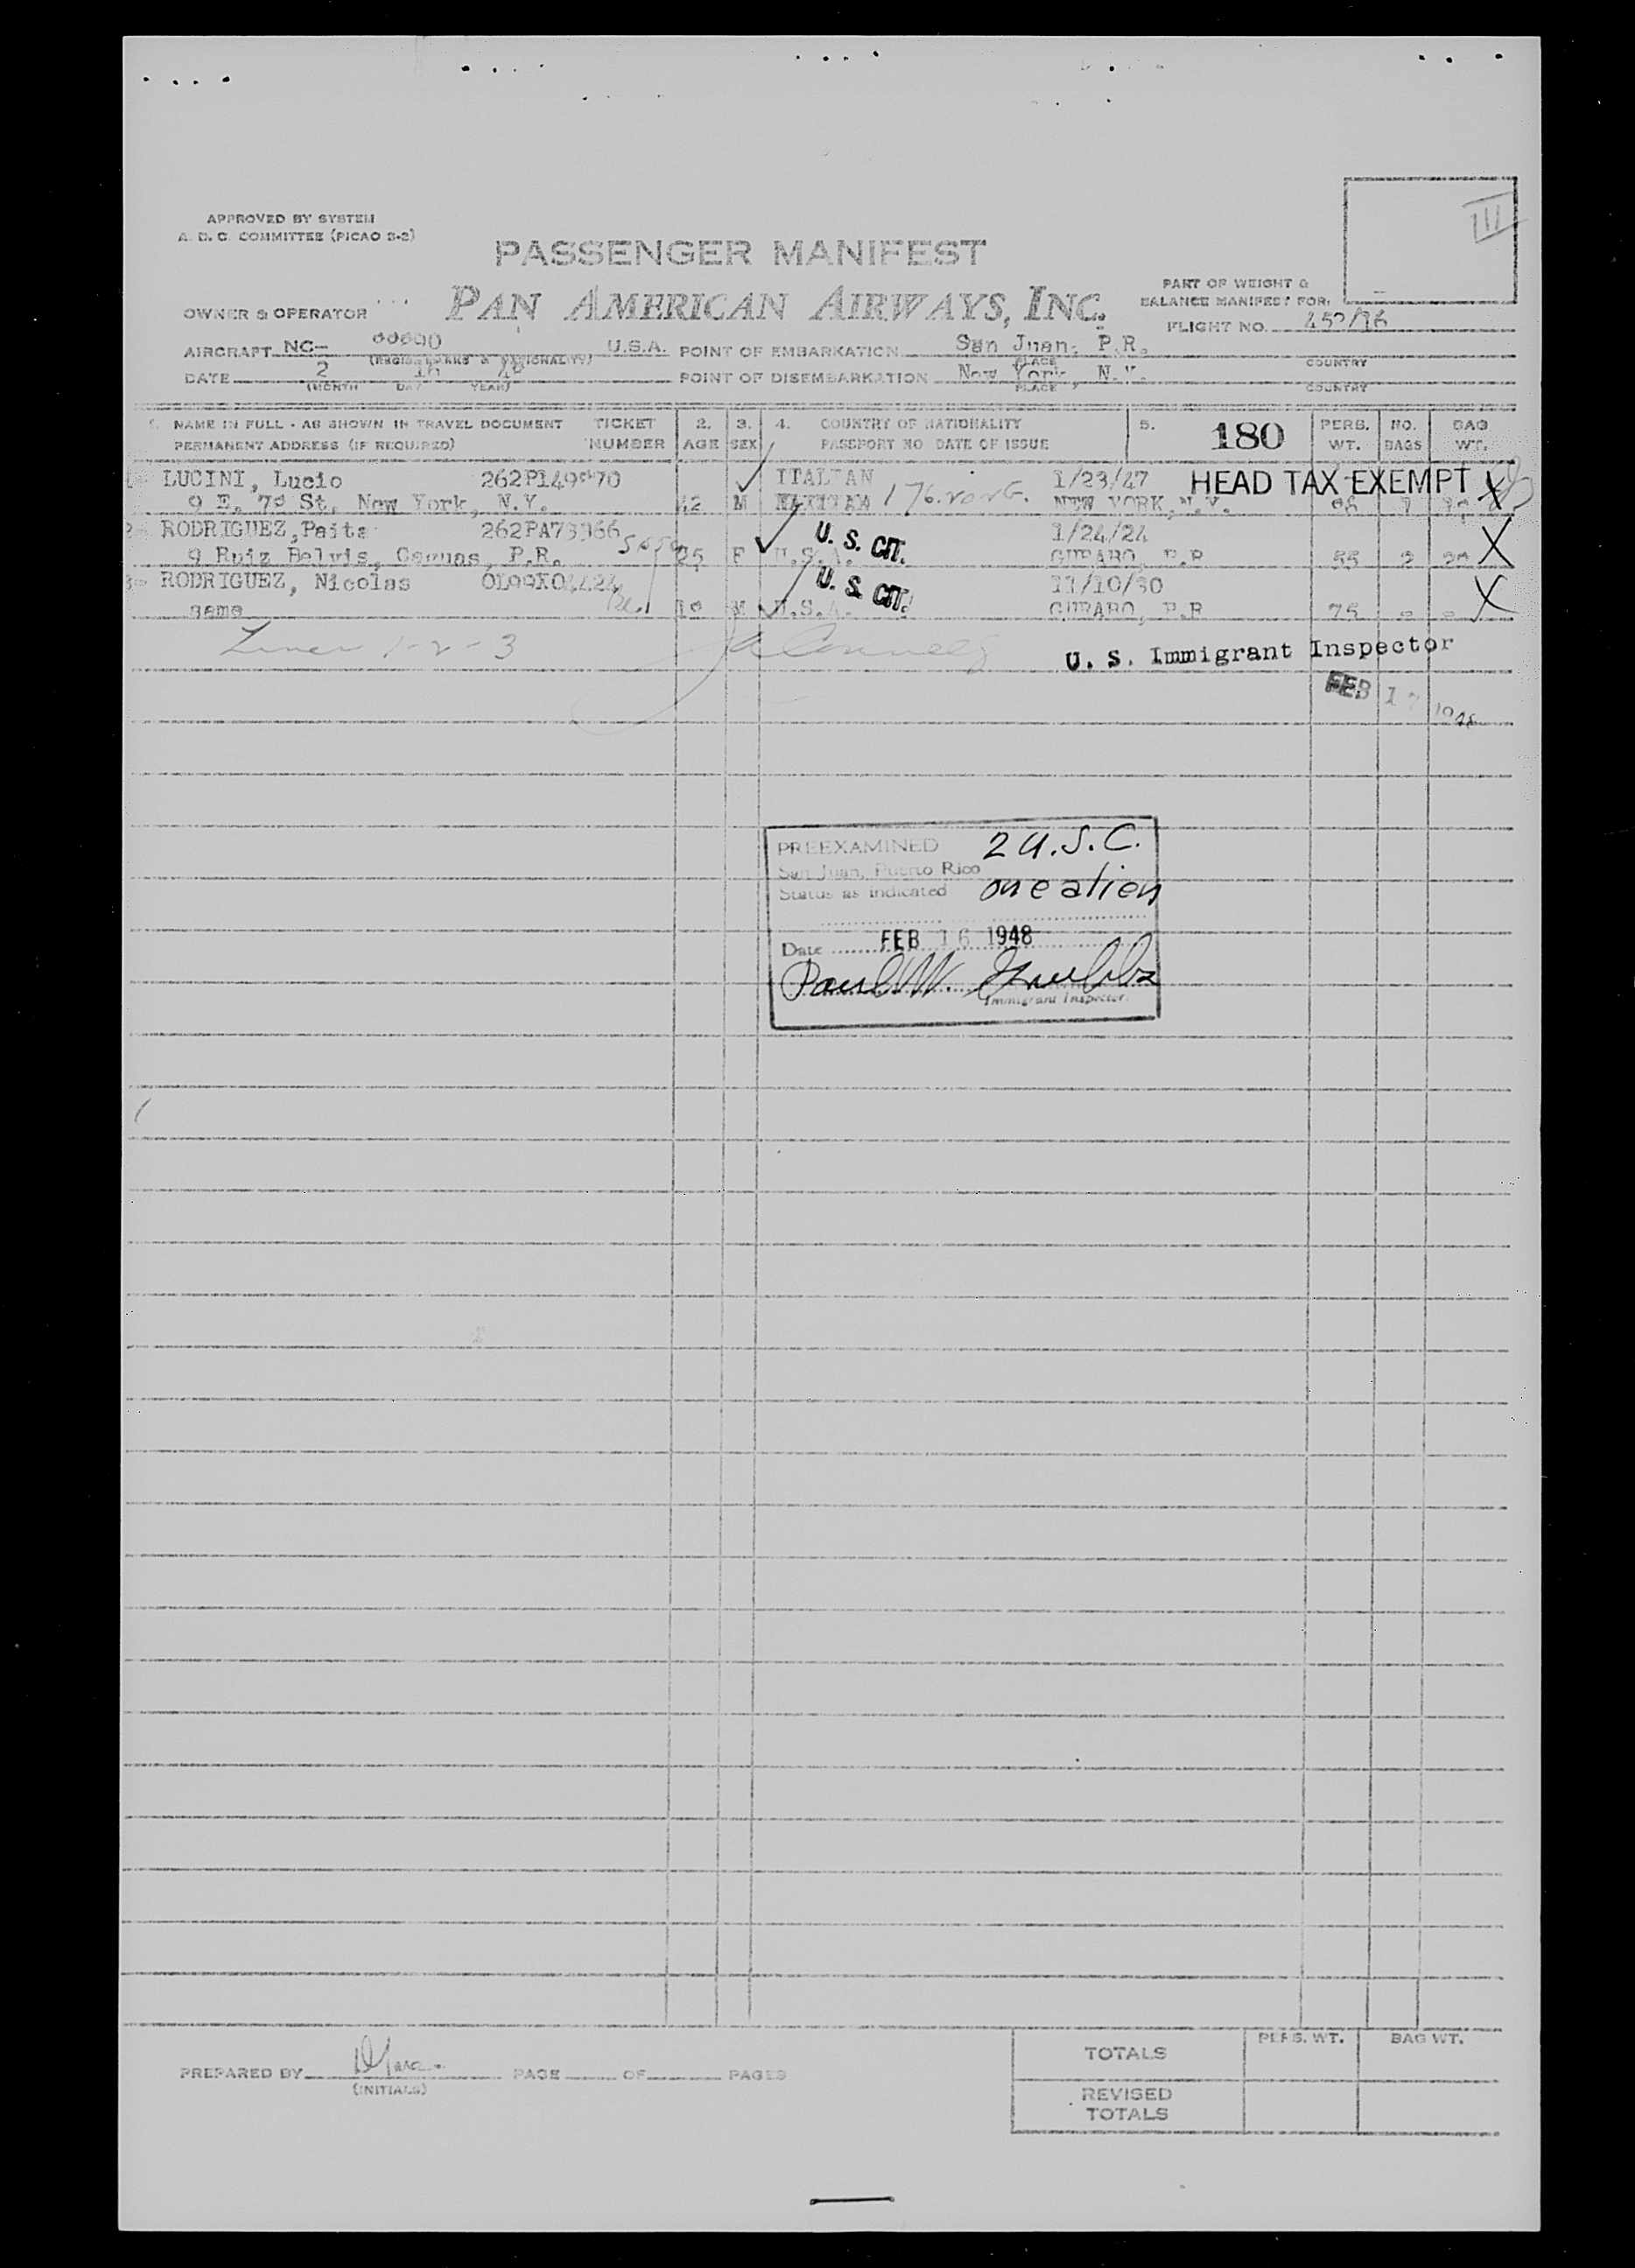 III
APPROVED BY SYSTEM
A. D. C. COMMITTEE (PICAO S-2)
PASSENGER MANIFEST
PART OF WEIGHT &
BALANCE MANIFEST FOR:
OWNER & OPERATOR PAN AMERICAN AIRWAYS, INC.
FLIGHT NO.
AIRCRAFT NC- U.S.A. POINT OF EMBARKATION San Juan, P.R.
(REGIS. MARKS & NATIONALITY) PLACE COUNTRY
DATE 2 16 POINT OF DISEMBARKATION New York, N.Y.
(MONTH DAY YEAR) PLACE COUNTRY
1. NAME IN FULL - AS SHOWN IN TRAVEL DOCUMENT TICKET 2. 3. 4. COUNTRY OF NATIONALITY 5. 180 PERS. NO. BAG
PERMANENT ADDRESS (IF REQUIRED) NUMBER AGE SEX PASSPORT NO DATE OF ISSUE WT. BAGS WT.
LUCINI, Lucio ITALIAN 1/23/47 HEAD TAX EXEMPT X
9 E. St. New York, N.Y. 42 M NEW YORK, N.Y.
RODRIGUEZ, U. S. CIT. 1/24/24
9 Ruiz Belvis, Caguas, P.R. 25 F U.S.A. GURABO, P.R 55 2 X
RODRIGUEZ, Nicolas U. S. CIT. 11/10/30
same M U.S.A. GURABO, P.R 75 X
Lines 1-2-3
U. S. Immigrant Inspector
FEB 17 1948
PREEXAMINED 2 U.S.C.
San Juan, Puerto Rico
Status as indicated one alien
Date FEB 16 1948
Paul W.
Immigrant Inspector
PREPARED BY PAGE OF PAGES
(INITIALS)
PERS. WT. BAG WT.
TOTALS
REVISED
TOTALS